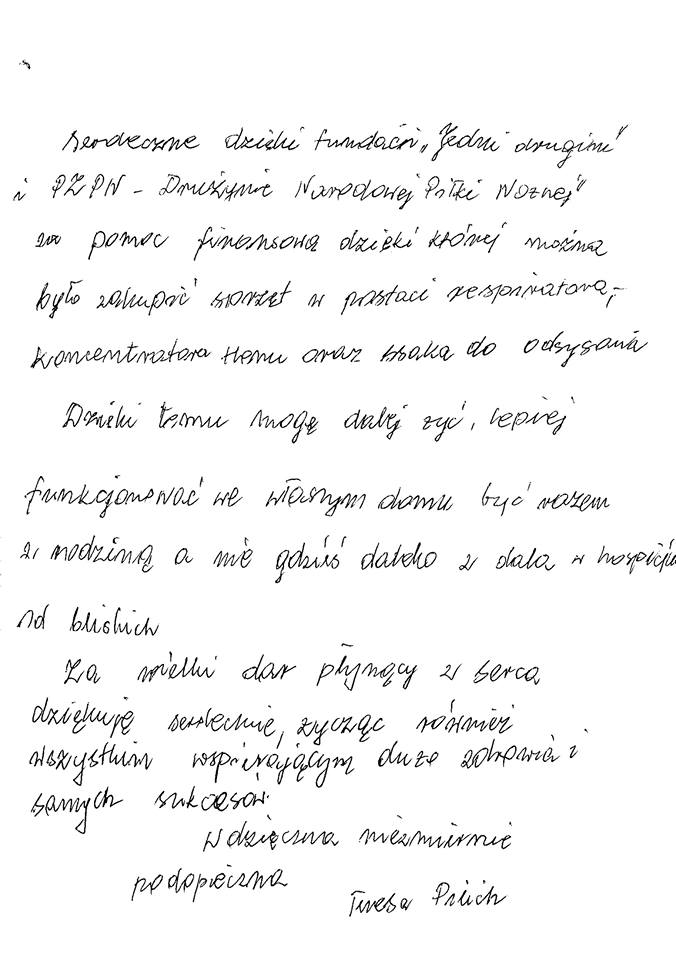 Serdeczne dzięki fundacji „Jedni drugim"
i PZPN - Drużynie Narodowej Piłki Nożnej"
za pomoc finansową dzięki której można
było zakupić sprzęt w postaci respiratora,
koncentratora tlenu oraz ssaka do odsysania
Dzięki temu mogę dalej żyć, lepiej
funkcjonować we własnym domu być razem
z rodziną a nie gdzieś daleko z dala w hospicju
od bliskich
Za wielki dar płynący z serca
dziękuję serdecznie, życząc również
wszystkim wspierającym dużo zdrowia i
samych sukcesów.
Wdzięczna niezmiernie
podopieczna
Teresa